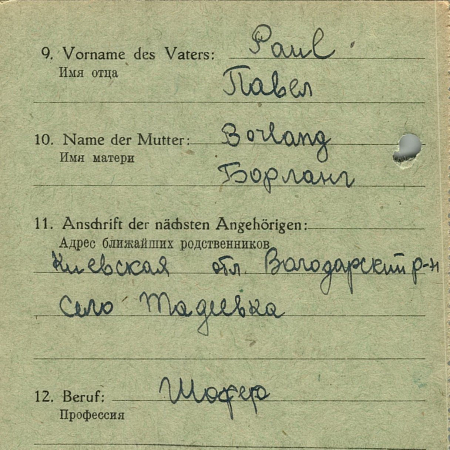 9. Vorname des Vaters: Paul.
Имя отца
Павел
10. Name der Mutter: Borlang
Имя матери
Борланг
11. Anschrift der nächsten Angehörigen:
Адрес ближайших родственников
Киевская обл. Володарский р-н
село Тадеевка
12. Beruf: Шофер
Профессия